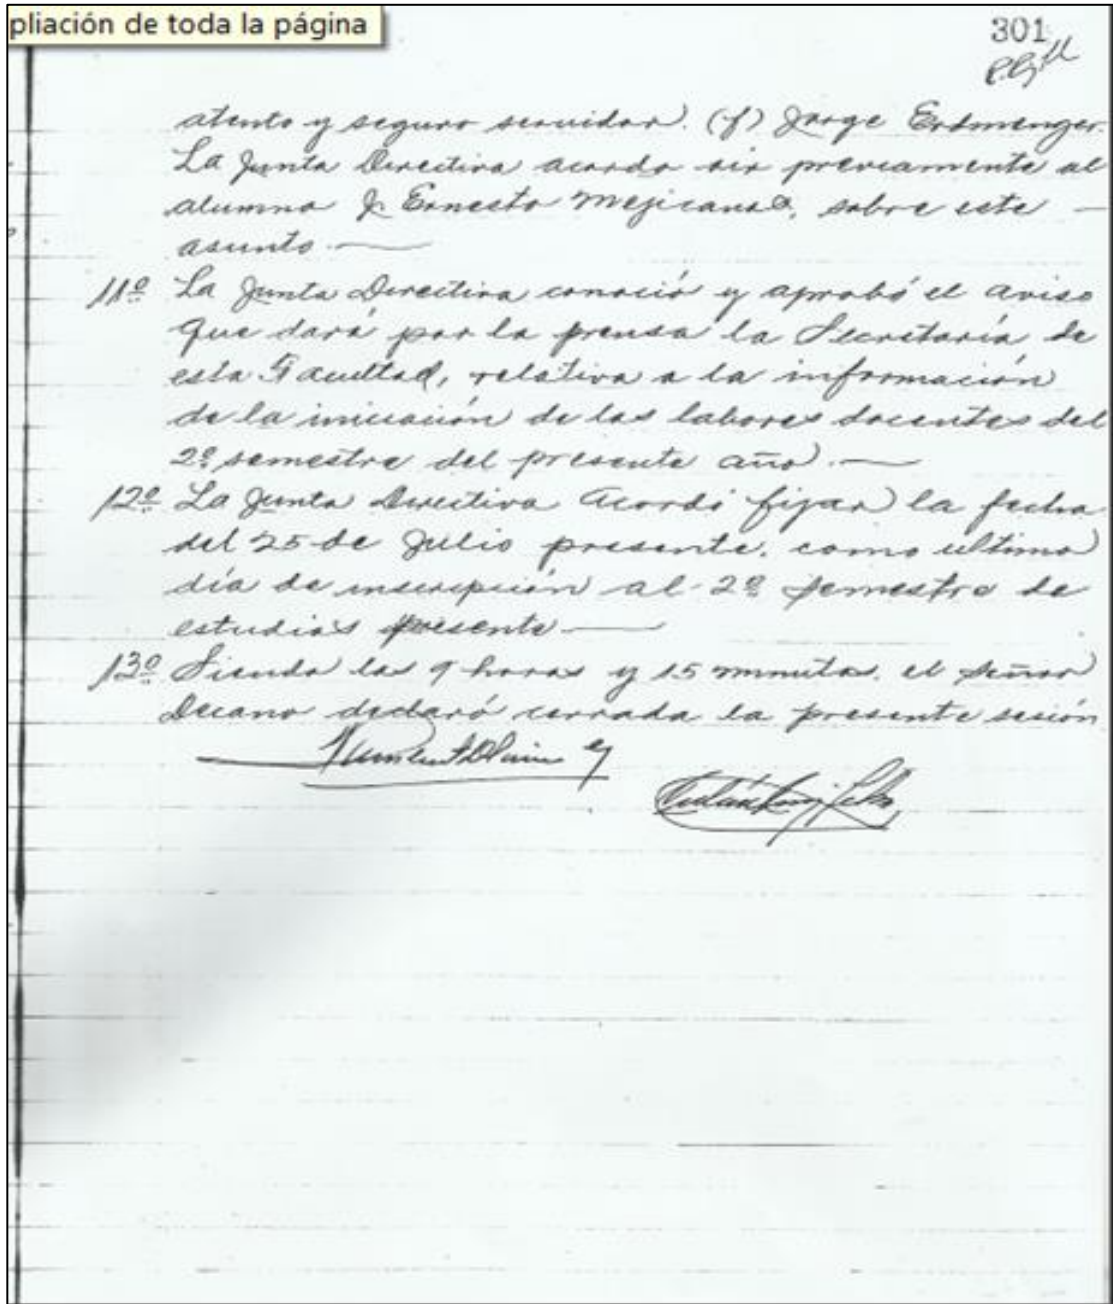 pliación de toda la página
301
atento y seguro servidor. (f) Jorge Erdmenger.
La Junta Directiva acordo oir previamente al
alumno J. Ernesto Mejicanos, sobre este —
asunto. —
11º La Junta Directiva conoció y aprobó el aviso
que dará por la prensa la Secretaría de
esta Facultad, relativa a la información
de la iniciación de las labores docentes del
2º semestre del presente año. —
12º La Junta Directiva acordó fijar la fecha
del 25 de Julio presente, como ultimo
día de inscripción al 2º semestre de
estudios presente —
13º Siendo las 9 horas y 15 minutos, el señor
Decano declaró cerrada la presente sesión